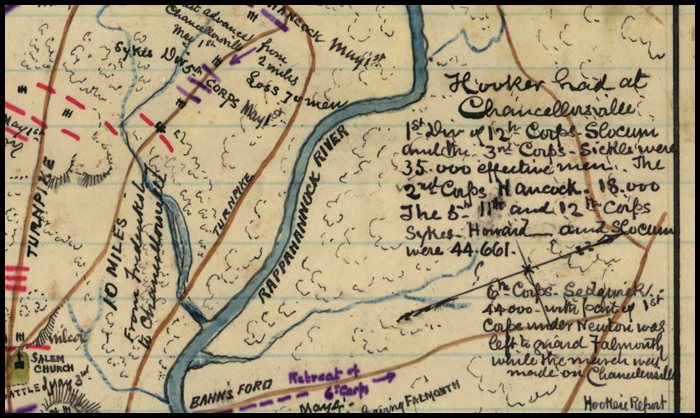 HANCOCK May 1st
advance
Chancellorsville
May 1st
Sykes Div 5th CORPS May 1st
from
2 miles
Loss 70 men
May 1st
Hooker had at
Chancellorsville
1st Div of 12th Corps - Slocum
and the 3rd Corps - Sickles were
35.000 effective men. The
2nd Corps Hancock. 18.000
The 5th 11th and 12th Corps
Sykes. Howard and Slocum
were 44.661.
RAPPAHANNOCK RIVER
TURNPIKE
TURNPIKE
10 MILES
From Fredericks
to Chancellorsville
6th Corps. Sedgwick.
44.000 - with part of 1st
Corps under Newton was
left to guard Falmouth
while the march was
made on Chancellorsville
Hookers Report
Wilcox
SALEM
CHURCH
BATTLE May 3rd
BANKS FORD
Retreat of
6th Corps
May 4
FALMOUTH